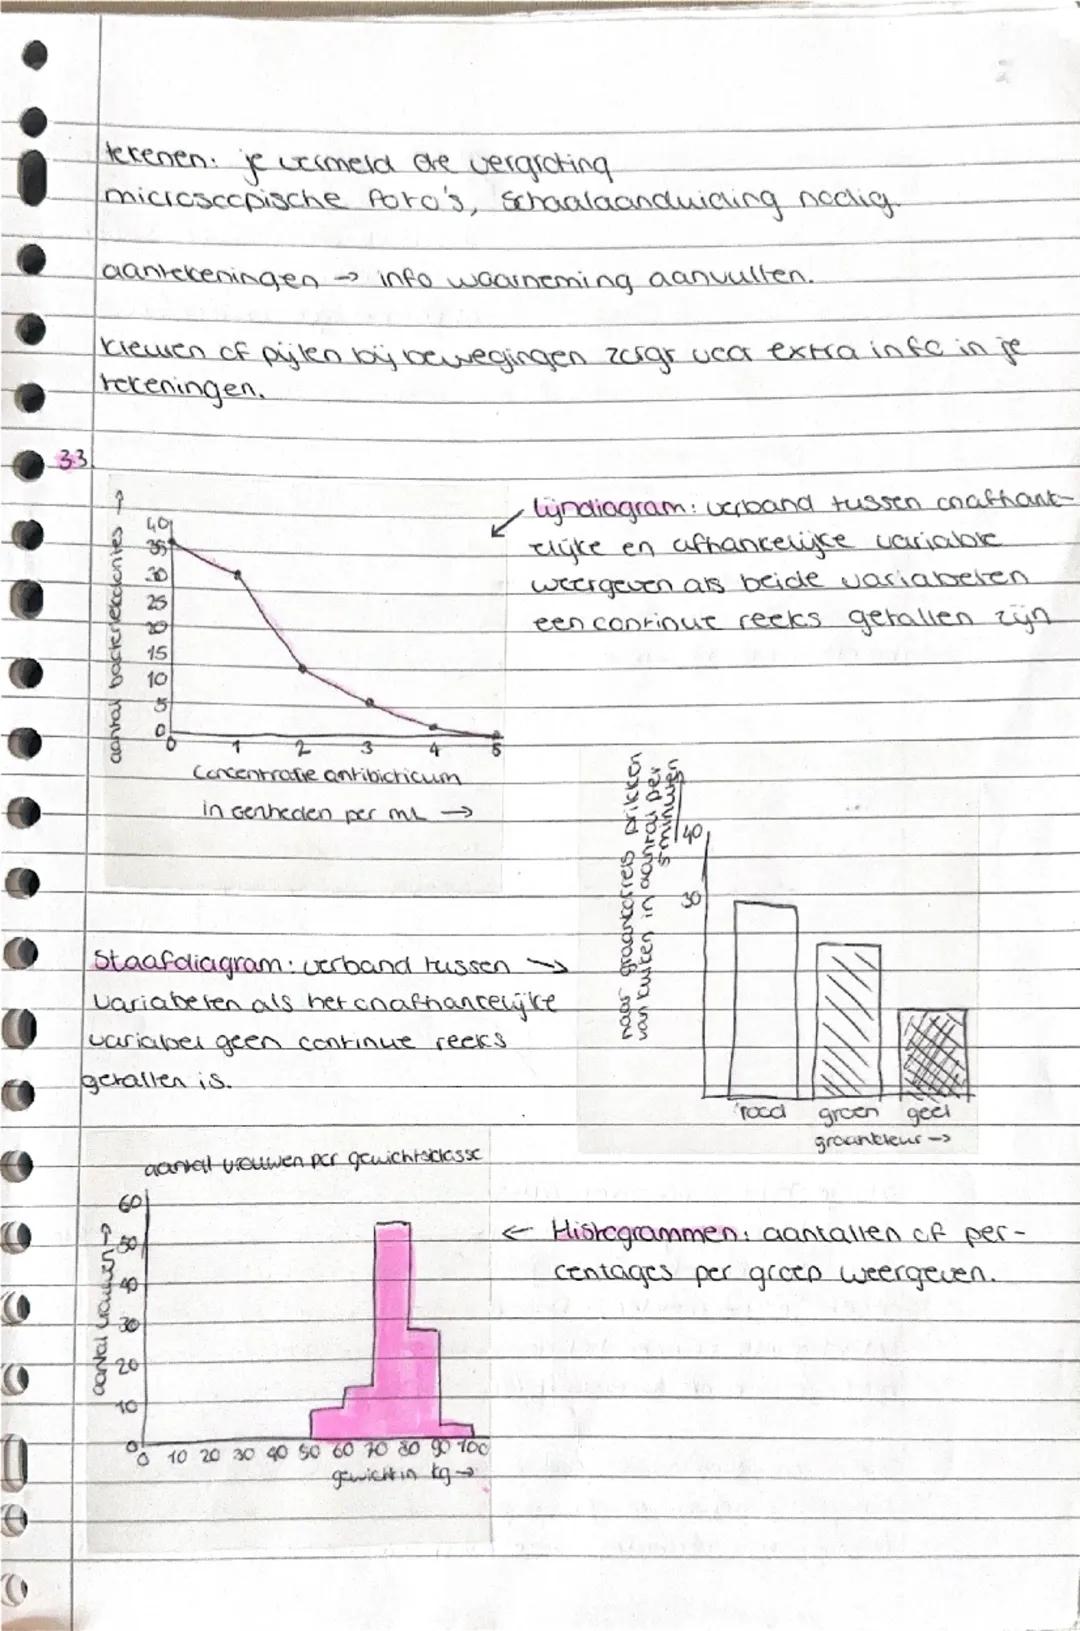 tekenen: je vermeld de vergroting
microscopische foto's, schaalaanduiding nodig.
aantekeningen → info waarneming aanvullen.
kleuren of pijlen bij bewegingen zorgt voor extra info in je
tekeningen.
3.3
lijndiagram: verband tussen onafhank-
elijke en afhankelijke variable
weergeven als beide variabelen
een continue reeks getallen zijn
aantal bacteriekolonies →
40
35
30
25
20
15
10
5
0
0 1 2 3 4 5
Concentratie antibioticum
in eenheden per mL →
naar graankorrels prikken
van kuiken in aantal per
5 minuten
40
30
rood groen geel
graankleur →
Staafdiagram: verband tussen →
variabelen als het onafhankelijke
variabel geen continue reeks
getallen is.
aantal vrouwen per gewichtsklasse
aantal vrouwen →
60
50
40
30
20
10
0
0 10 20 30 40 50 60 70 80 90 100
gewicht in kg →
← Histogrammen: aantallen of per-
centages per groep weergeven.